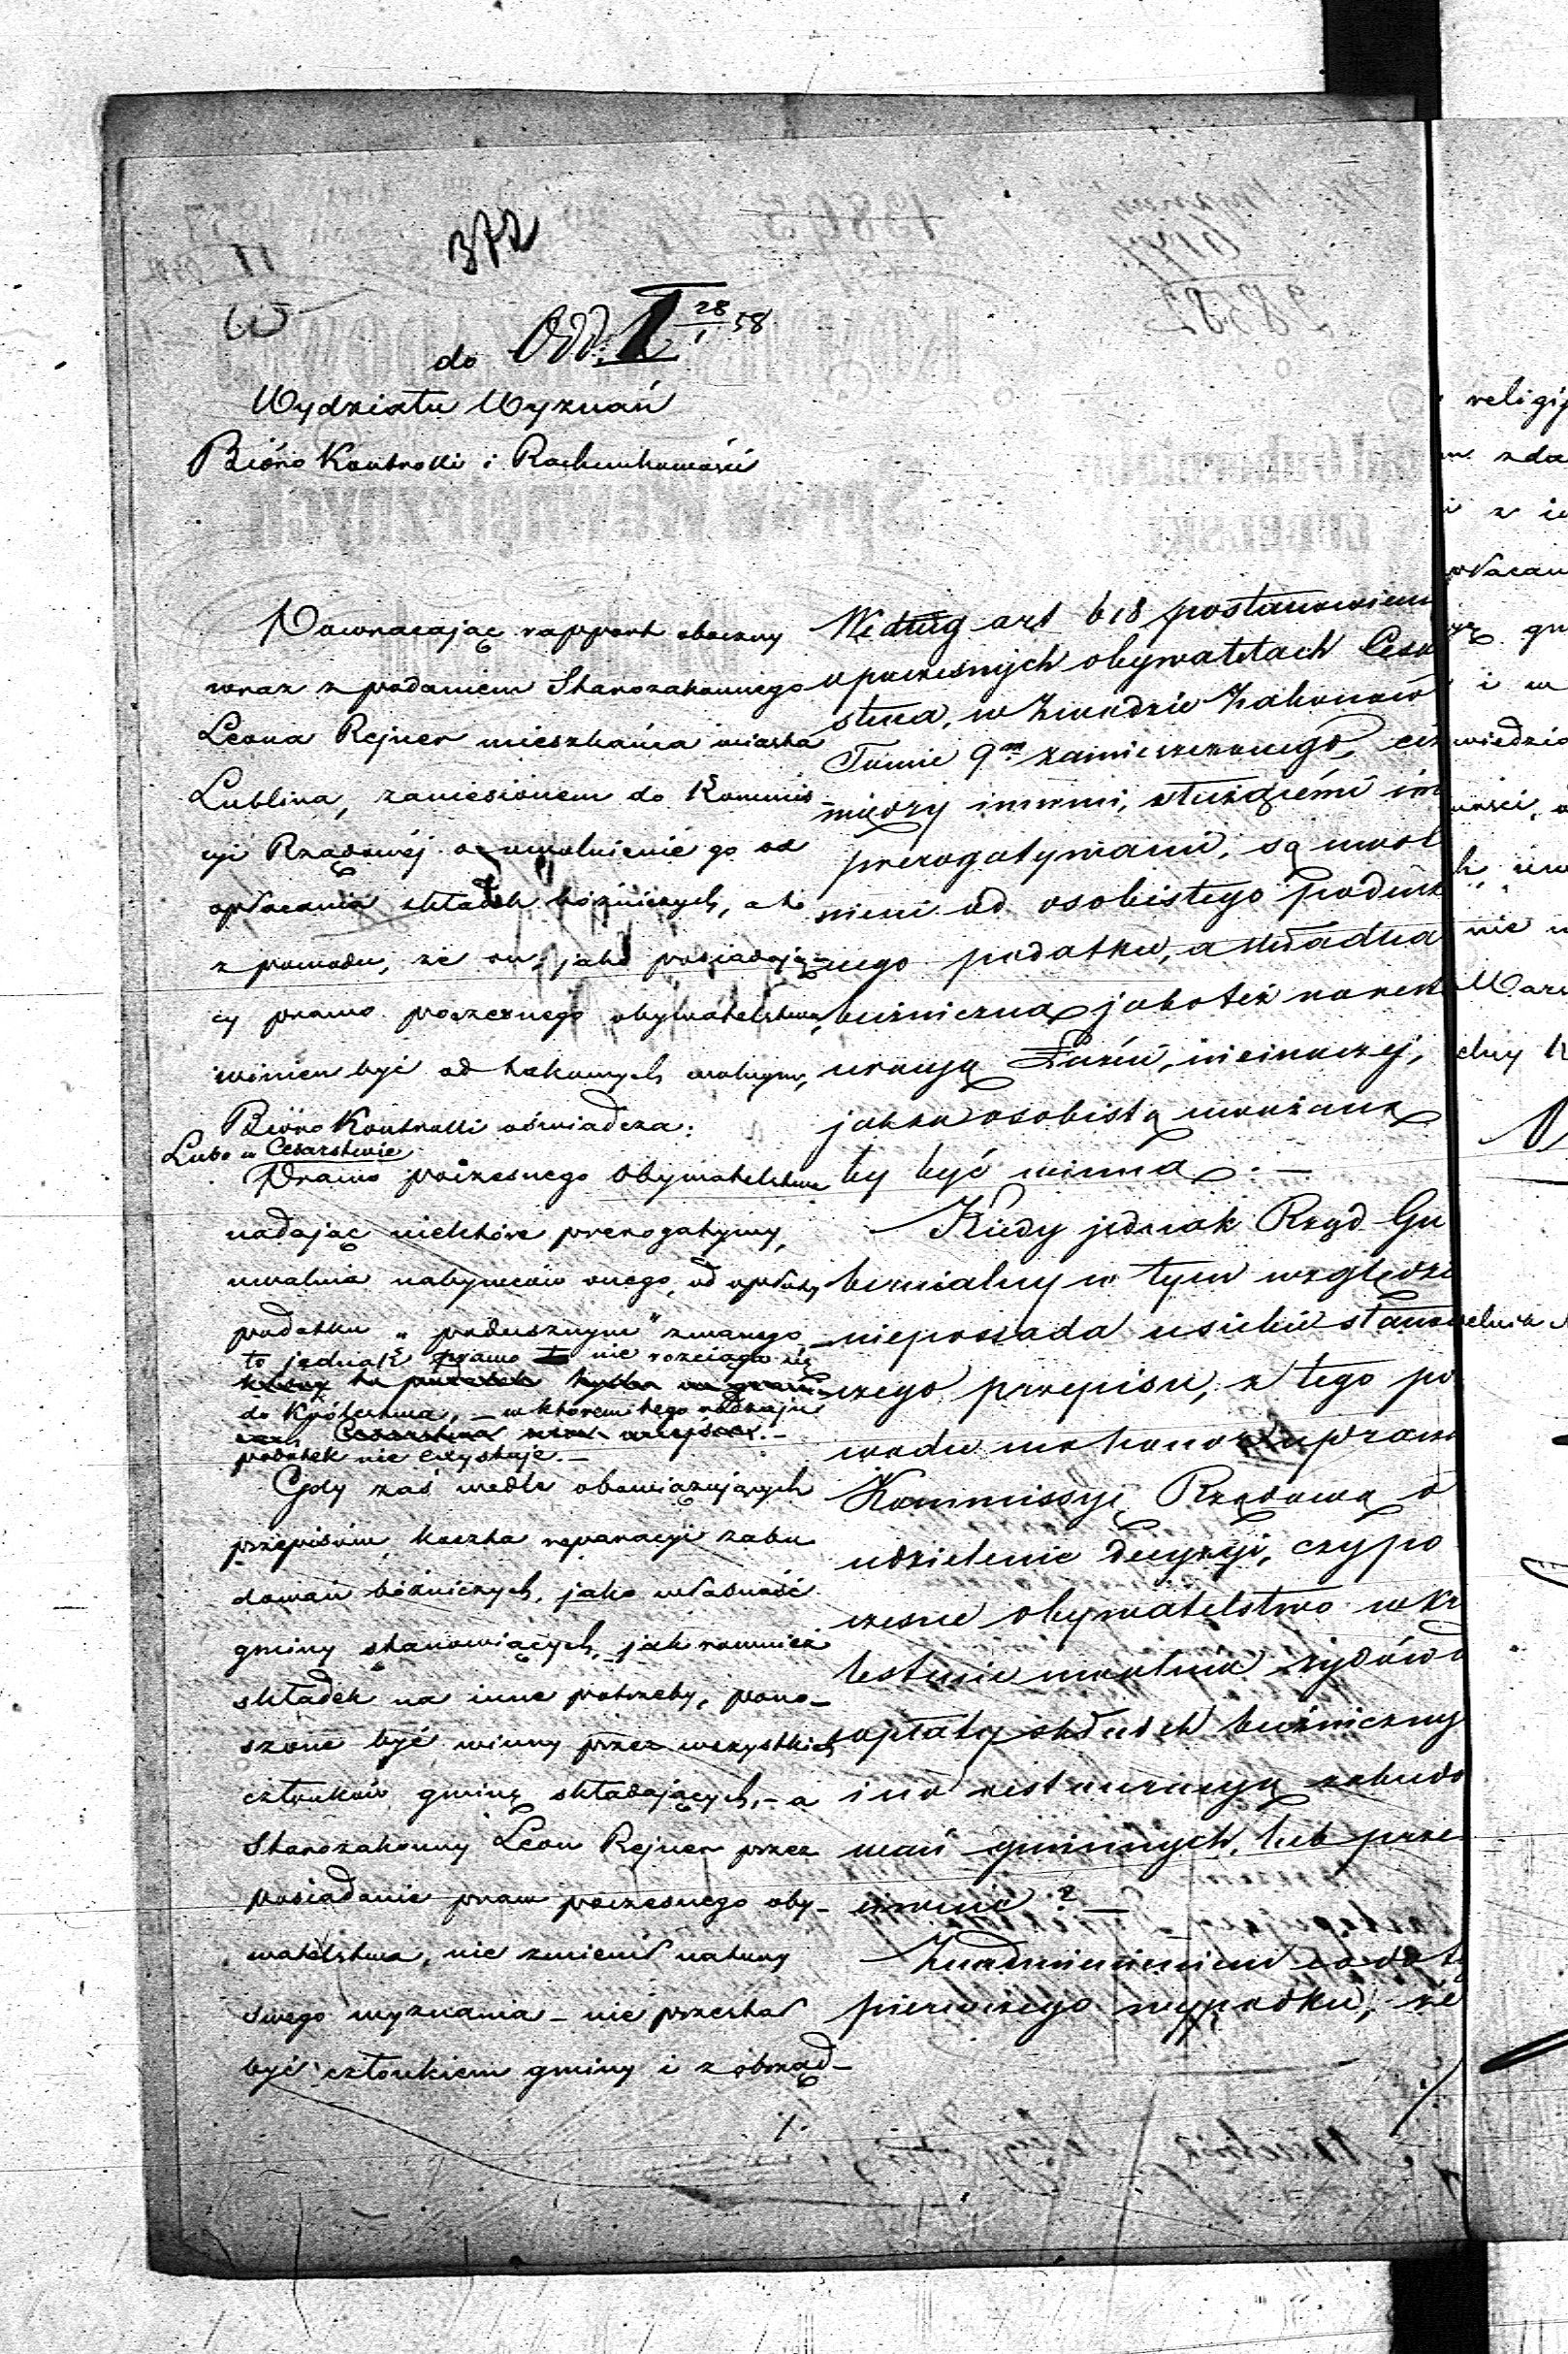 372
W
do Odd. I 28/1 58
Wydziału Wyznań
Bióro Kontrolli i Rachunkowości
Powracając rapport oboczny
wraz z podaniem Starozakonnego
Leona Rejner mieszkańca miasta
Lublina, zaniesionem do Kommis-
syi Rządowéj o uwolnienie go od
opłacania składek bóżniczych, a to
z powodu, że on, jako posiadają-
cy prawo poczesnego obywatelstwa,
winien być od takowych wolnym,
Bióro Kontrolli oświadcza:
Lubo w Cesarstwie
Prawo poczesnego Obywatelstwa
nadając niektóre prerogatywy,
uwalnia nabywców onego, od opłaty
podatku „podusznym" zwanego,
to jednak prawo nie rozciąga się
do Królestwa, – w którem tego rodzaju
podatek nie exystuje. –
Gdy zaś wedle obowiązujących
przepisów, koszta reparacyi zabu
dowań bóżniczych, jako własność
gminy stanowiących, jak również
składek na inne potrzeby, pono-
szone być winny przez wszystkich
członków gminę składających, – a
Starozakonny Leon Rejner przez
posiadanie praw poczesnego oby-
watelstwa, nie zmienił natury
swego wyznania – nie przestał
być członkiem gminy i z obrząd-
./.
Według art 618 postanowieni
o poczesnych obywatelach Cesa
stwa, w Zwodzie Zakonów
Tomie 9m zamieszczonego, ciż
między innemi, służącémi im
prerogatywami, są uwol
nieni od osobistego podusz
nego podatku, a składka
bużniczna jako też na rest
uracyę Łaźni, nieinaczej,
jak za osobistą uważaną
by być winna. –
Kiedy jednak Rząd Gu
bernialny w tym względzie
nieposiada u siebie stanow
czego przepisu, z tego po
wodu ma honor upraszać
Kommissyę Rządową o
udzielenie decyzyi, czy po
czesne obywatelstwo w Kró
lestwie uwalnia żydów od
opłaty składek bużniczny
i na restauracyę zabudo
wań gminnych, lub prze
ciwnie? –
Znadmienieniem co do
pierwszego wypadku, że
./.
religij
zda
i z ic
płacan
gm
i w
wiedzia
ności, o
nie